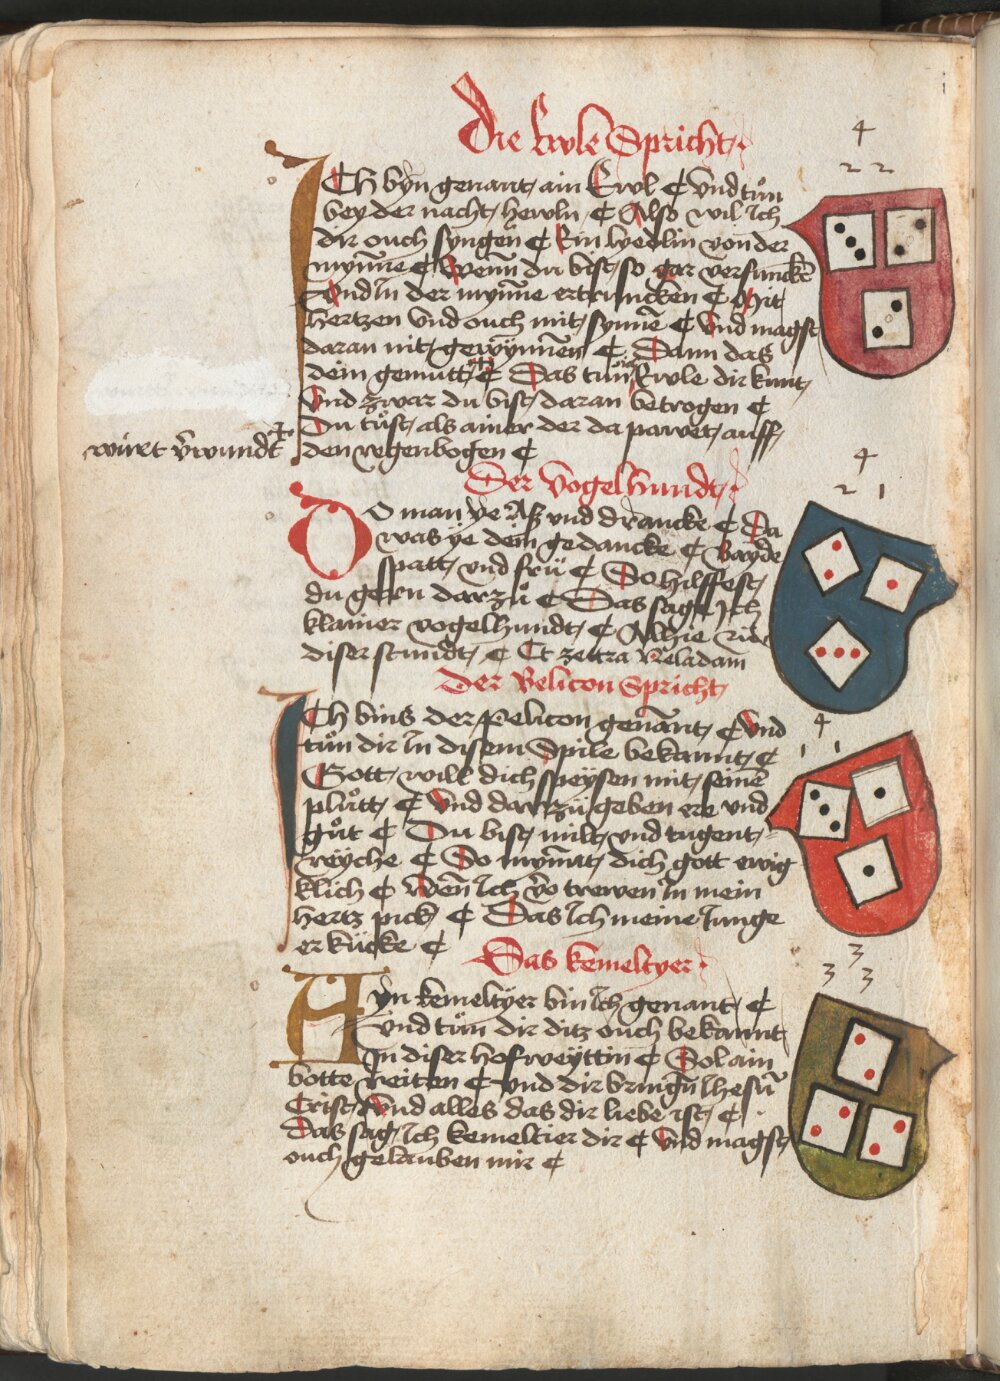 Die Ewle Spricht
4
2 2
ICh byn genant ain Ewl ¢ Vnd tůn
bey der nacht hewln ¢ Also wil Ich
dir ouch syngen ¢ Ein liedlin von der
mynne ¢ Wenn du bist so gar versunckē
Vnd In der mynne ertruncken ¢ Mit
hertzen vnd ouch mit synnē ¢ Vnd magst
daran nit gewynnen ¢ Dann das
dein gemütt ¢ Das tůn Ewle dir kunt
Vnd zwar du bist daran betrogen ¢
Du tůst als ainer der da pawet auff
würt v̄wundt
den regenbogen ¢
Der Vogelhundt
4
2 1
DO man ye Aß vnd dranncke ¢ Da
was ye dein gedancke ¢ Bayde
spatt vnd frü ¢ So hilffest
du gern darzů ¢ Das sag Ich
klainer vogelhundt ¢ Alhie zu
diser stundt ¢ Et zettra
Der Belicon Spricht
4
1 1
ICh bins der Pelicon genant ¢ Vnd
tůn dir In disem Spile bekannt ¢
Gott will dich speysen mit seinē
plůtt ¢ Vnd darzů geben ere vnd
gůt ¢ Du bist milt vnd tugent
reyche ¢ So nymat dich gott ewig
klich ¢ Wen Ich vo trewen In mein
hertz pick ¢ Das Ich meine Junge
erkücke ¢
Das kemeltyer
3
3 3
AYn kemeltyer bin Ich genant ¢
Vnd tůn dir ditz ouch bekannt
In diser hofweyttin ¢ Sol ain
botte reitten ¢ vnd dir bringn Ihesū
Crist Vnd alles das dir liebe ist ¢
Das sag Ich kemeltier dir ¢ Vnd magst
ouch gelauben mir ¢